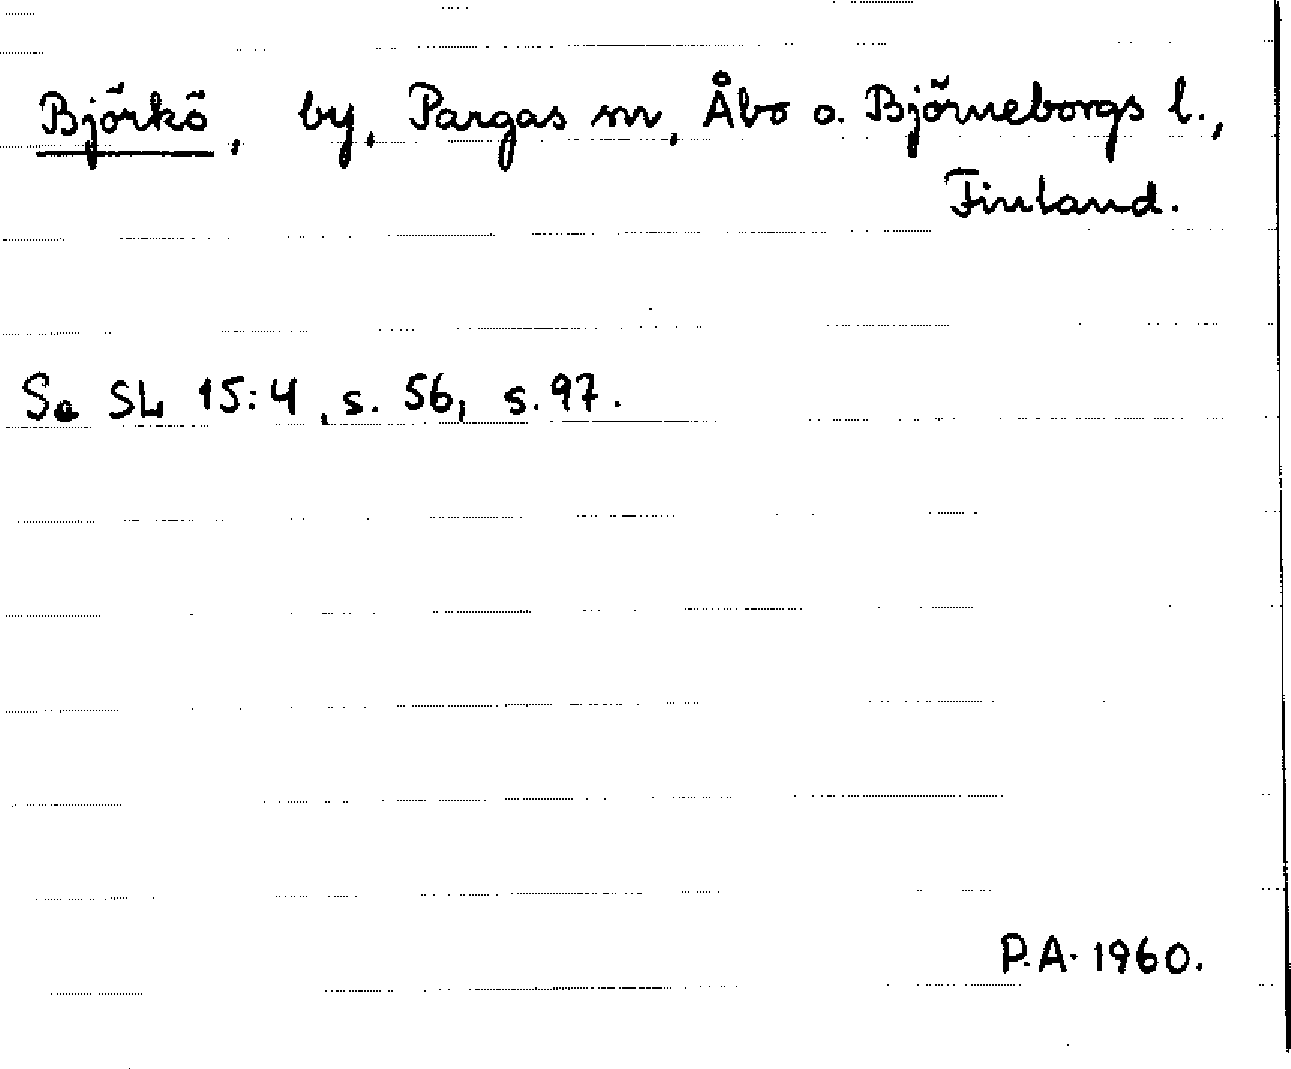 Björkö, by, Pargas sn, Åbo o. Björneborgs l.,
Finland.
Se SL 15:4, s. 56, s. 97.
P.A. 1960.